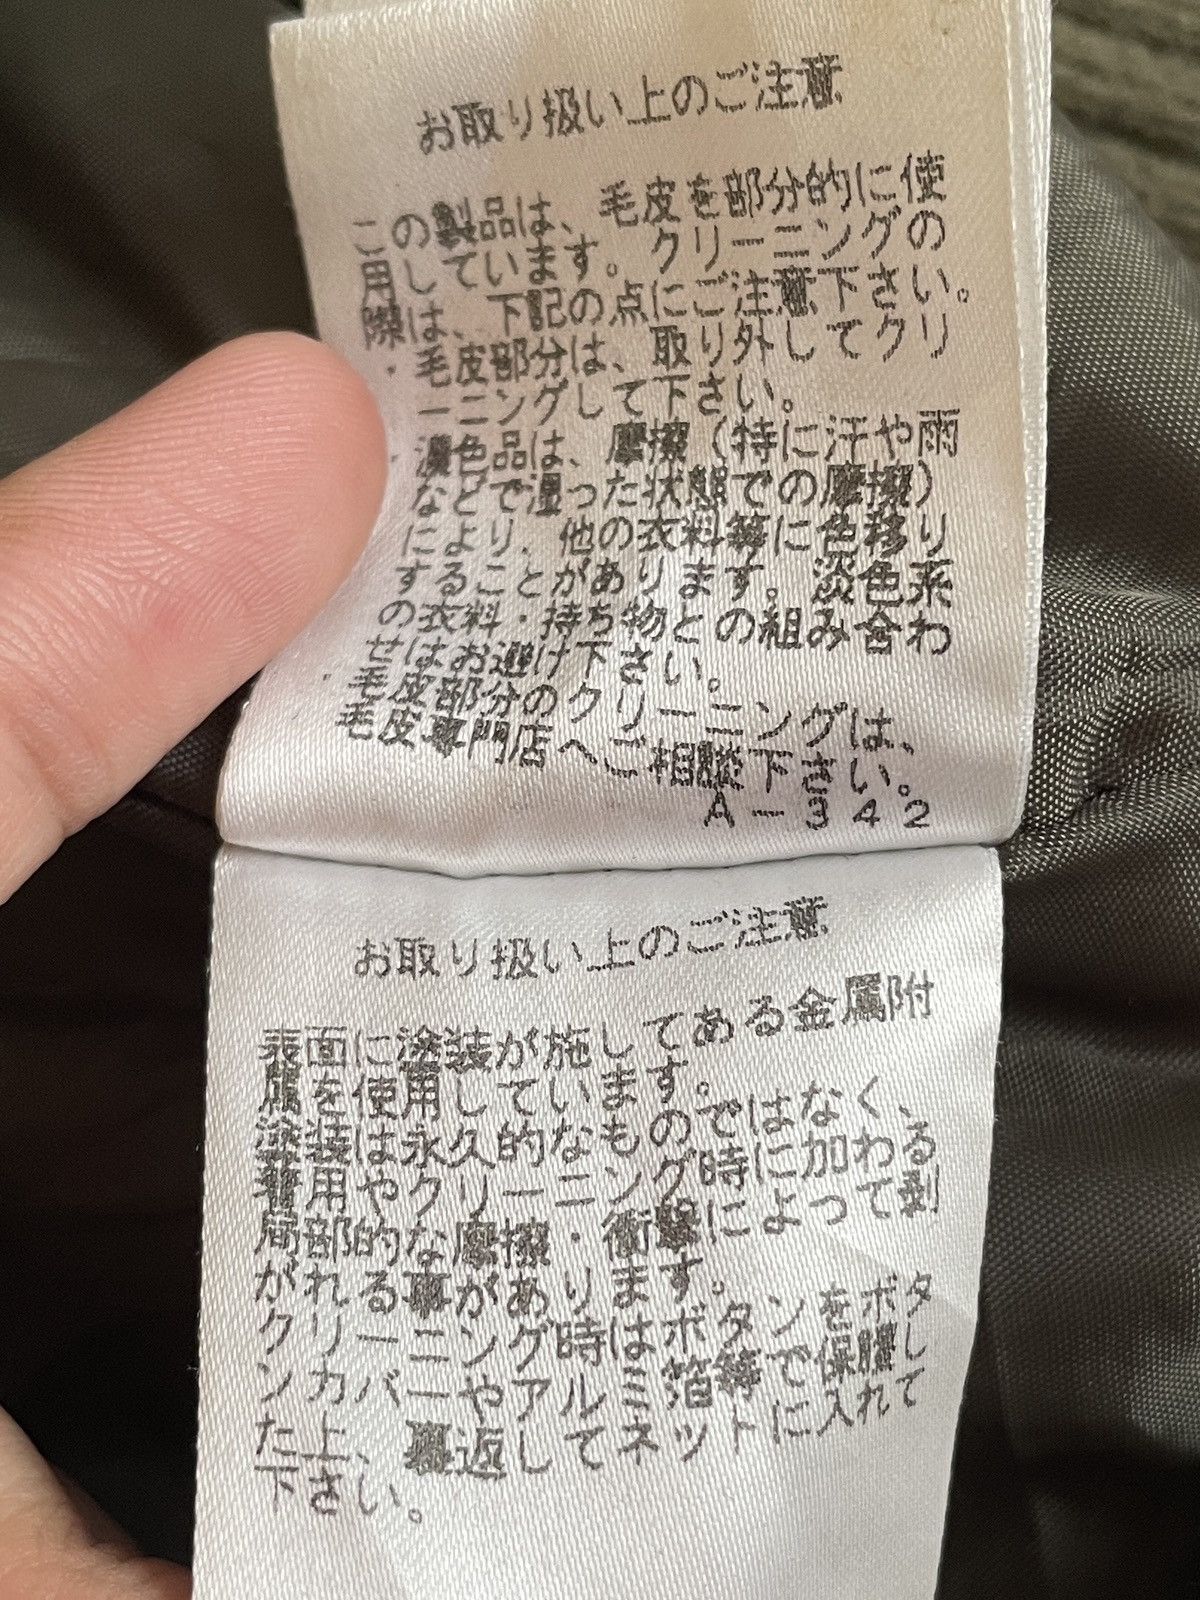 お取り扱い上のご注意
この製品は、毛皮を部分的に使
用しています。クリーニングの
際は、下記の点にご注意下さい。
・毛皮部分は、取り外してクリ
ーニングして下さい。
・濃色品は、摩擦（特に汗や雨
などで湿った状態での摩擦）
により、他の衣料等に色移り
することがあります。淡色系
の衣料・持ち物との組み合わ
せはお避け下さい。
・毛皮部分のクリーニングは、
毛皮専門店へご相談下さい。
A－342
お取り扱い上のご注意
表面に塗装が施してある金属附
属を使用しています。
塗装は永久的なものではなく、
着用やクリーニング時に加わる
局部的な摩擦・衝撃によって剥
がれる事があります。
クリーニング時はボタンをボタ
ンカバーやアルミ箔等で保護し
た上、裏返してネットに入れて
下さい。